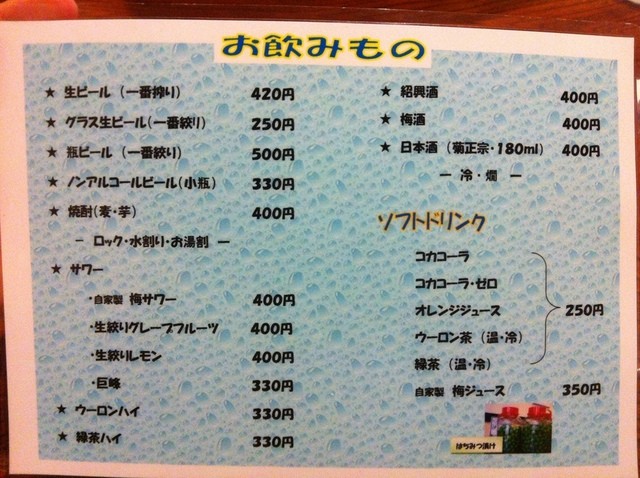 お飲みもの
★ 生ビール (一番搾り) 420円
★ グラス生ビール(一番絞り) 250円
★ 瓶ビール (一番絞り) 500円
★ ノンアルコールビール(小瓶) 330円
★ 焼酎(麦・芋) 400円
ー ロック・水割り・お湯割 ー
★ サワー
・自家製 梅サワー 400円
・生絞りグレープフルーツ 400円
・生絞りレモン 400円
・巨峰 330円
★ ウーロンハイ 330円
★ 緑茶ハイ 330円
★ 紹興酒 400円
★ 梅酒 400円
★ 日本酒 (菊正宗・180ml) 400円
ー 冷・燗 ー
ソフトドリンク
コカコーラ
コカコーラ・ゼロ
オレンジジュース 250円
ウーロン茶 (温・冷)
緑茶 (温・冷)
自家製 梅ジュース 350円
はちみつ漬け